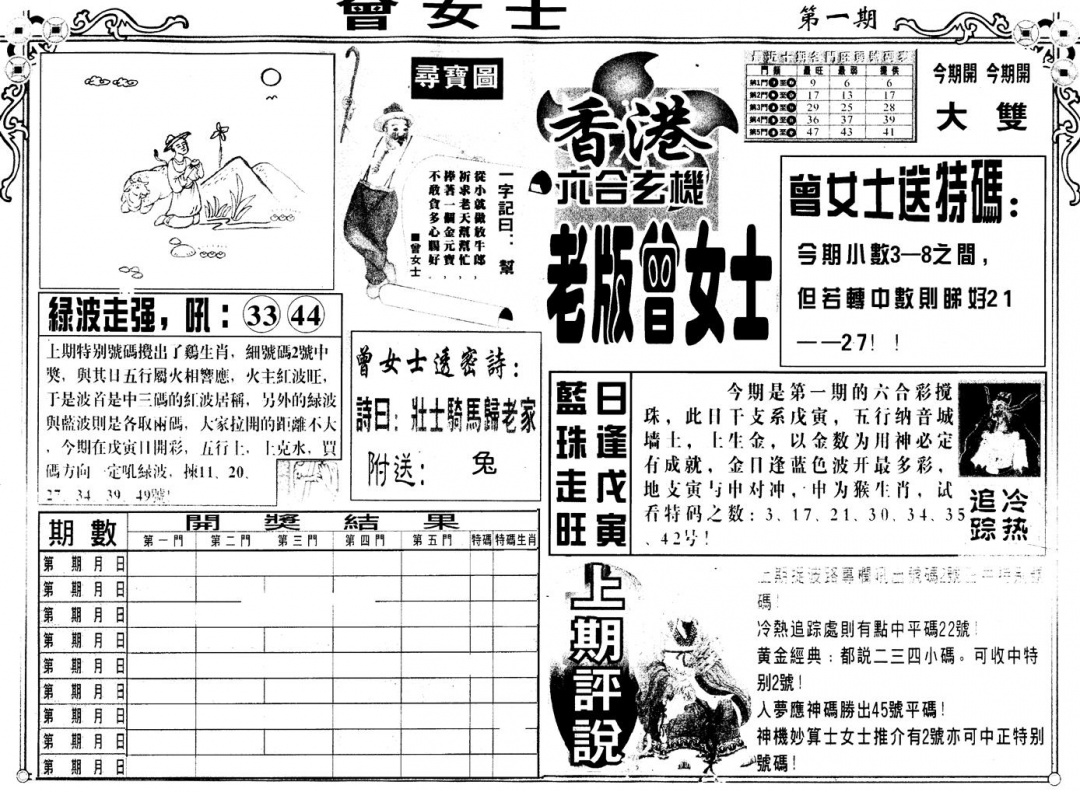 曾女士
第一期
尋寶圖
一字記曰：幫
從小就做放牛郎，
祈求老天幫幫忙，
捧著一個金元寶，
不敢貪多心腸好。
曾女士
綠波走强，吼：33 44
上期特别號碼攪出了鷄生肖，細號碼2號中
獎，與其日五行屬火相響應，火主紅波旺，
于是波首是中三碼的紅波居稱，另外的緑波
與藍波則是各取兩碼，大家拉開的距離不大
，今期在戊寅日開彩，五行土，土克水，買
碼方向一定吼緑波，揀11、20、
27、34、39、49號！
曾女士透密詩：
詩曰：壯士騎馬歸老家
附送： 兔
開獎結果
期數 第一門 第二門 第三門 第四門 第五門 特碼 特碼生肖
第 期 月 日
第 期 月 日
第 期 月 日
第 期 月 日
第 期 月 日
第 期 月 日
第 期 月 日
第 期 月 日
第 期 月 日
香港
六合玄機
老版曾女士
門類 最旺 最弱 提供
第1門 至 9 6 6
第2門 至 17 13 17
第3門 至 29 25 28
第4門 至 36 37 39
第5門 至 47 43 41
今期開 今期開
大 雙
曾女士送特碼：
今期小數3—8之間，
但若轉中數則睇好21
——27！！
日逢戊寅
藍珠走旺
今期是第一期的六合彩搅
珠，此日干支系戊寅，五行纳音城
墙土，土生金，以金数为用神必定
有成就，金日逢蓝色波开最多彩，
地支寅与申对冲，申为猴生肖，试
看特码之数：3、17、21、30、34、35
、42号！
冷热
追踪
上期評說
上期捉波路專欄吼出號碼2號
碼！
冷熱追踪處則有點中平碼22號！
黃金經典：都説二三四小碼。可收中特
别2號！
人夢應神碼勝出45號平碼！
神機妙算士女士推介有2號亦可中正特别
號碼！